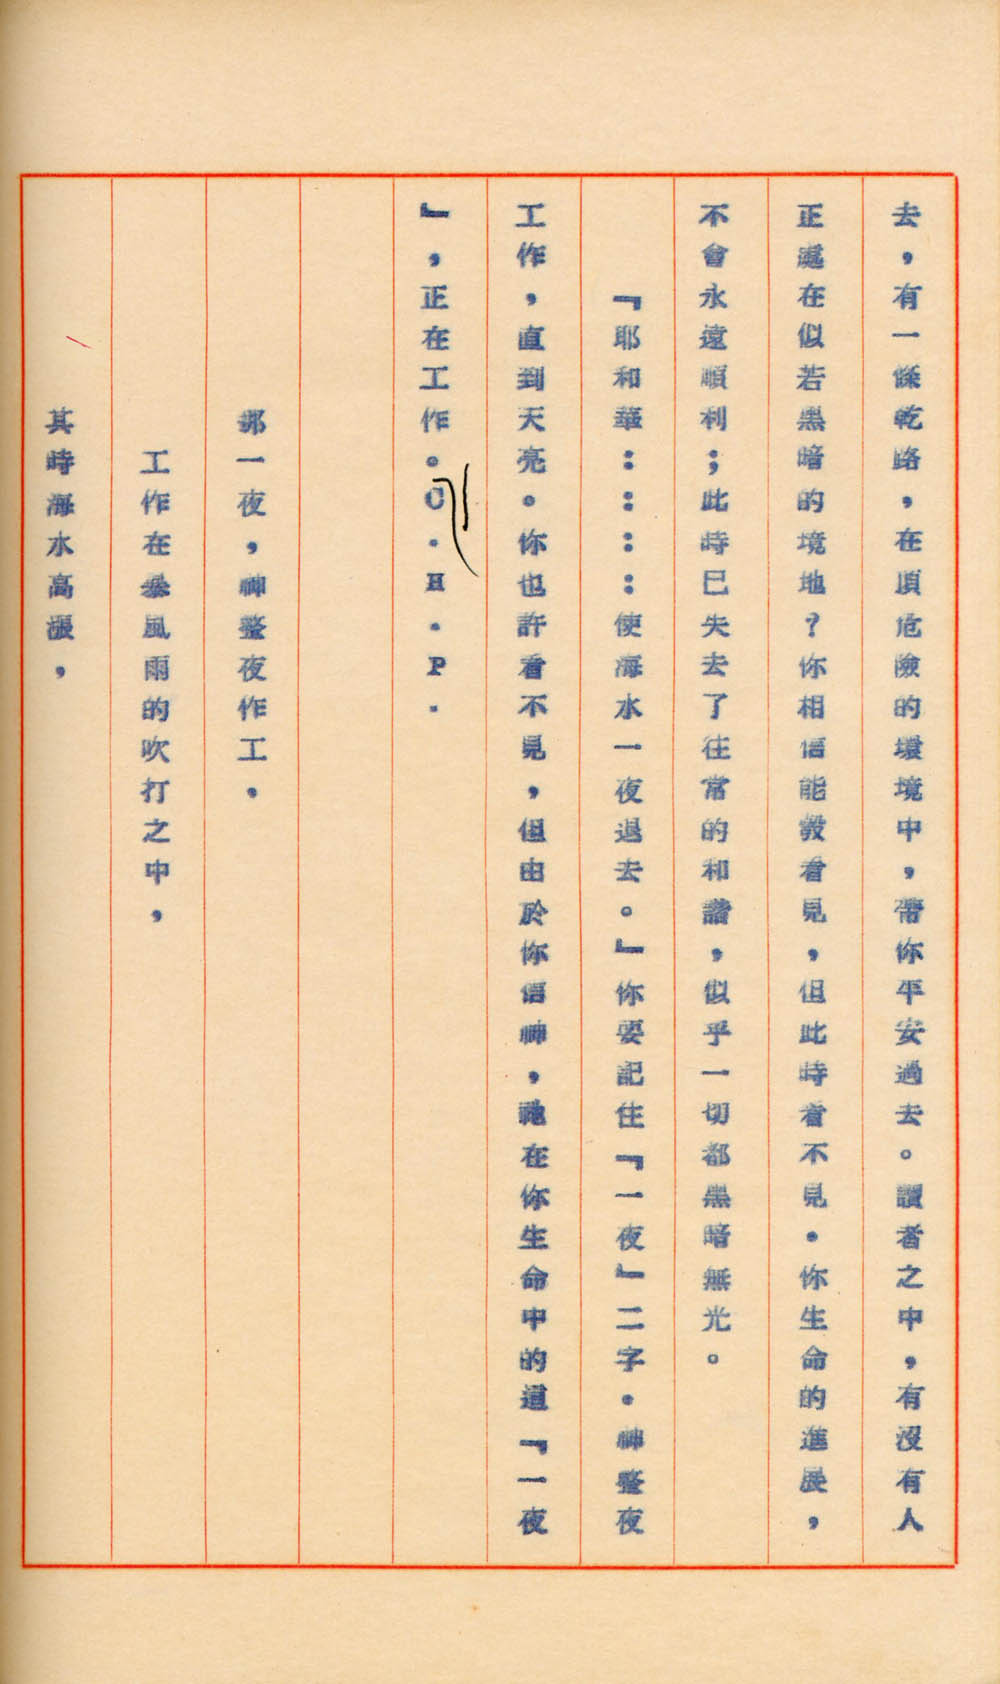 去，有一條乾路，在頂危險的環境中，帶你平安過去。讀者之中，有沒有人
正處在似若黑暗的境地？你相信能彀看見，但此時看不見．你生命的進展，
不會永遠順利；此時已失去了往常的和諧，似乎一切都黑暗無光。
『耶和華：：：：使海水一夜退去。』你要記住『一夜』二字．神整夜
工作，直到天亮。你也許看不見，但由於你信神，祂在你生命中的這『一夜
』，正在工作。C．H．P．
那一夜，神整夜作工，
工作在暴風雨的吹打之中，
其時海水高漲，